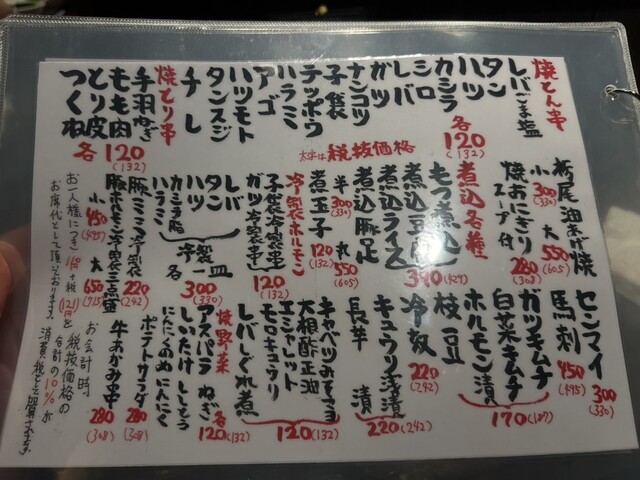 焼とん串
レバごま塩
タン
ハツ
カシラ
シロ
レバ
ガツ
ナンコツ
子袋
テッポウ
ハラミ
アゴ
ハツモト
タンスジ
チレ
各120
(132)
焼とり串
手羽ねぎ
もも肉
とり皮
つくね
各120
(132)
太字は税抜価格
栃尾油あげ焼
小300
(330)
大550
(605)
焼おにぎり
スープ付
280
(308)
煮込各種
もつ煮込
煮込豆腐
煮込ライス
煮込豚足
390(429)
半300
(330)
丸550
(605)
煮玉子
120
(132)
冷製ホルモン
子袋冷製串
ガツ冷製串
120
(132)
レバ
タン
ハツ
カシラ脂
ハラミ
冷製一皿
各300
(330)
豚ミミ冷製
220
(242)
豚ホルモン冷製三点盛
小450
(495)
大650
(715)
センマイ
300
(330)
馬刺
450
(495)
ガツキムチ
白菜キムチ
ホルモン漬
170(187)
枝豆
冷奴
220
(242)
キュウリ浅漬
長芋漬
220(242)
キャベツみそさき
大根酢正油
エシャレット
モロキュウリ
レバしぐれ煮
120(132)
焼野菜
アスパラ ねぎ
しいたけ ししとう
にたくらのめにんにく
各120(132)
ポテトサラダ
280
(308)
牛あかみ串
280
(308)
お会計時
税抜価格の
合計の10%が
消費税として加算されます
お一人様につき110+税(121)円を
お席代として頂いております。